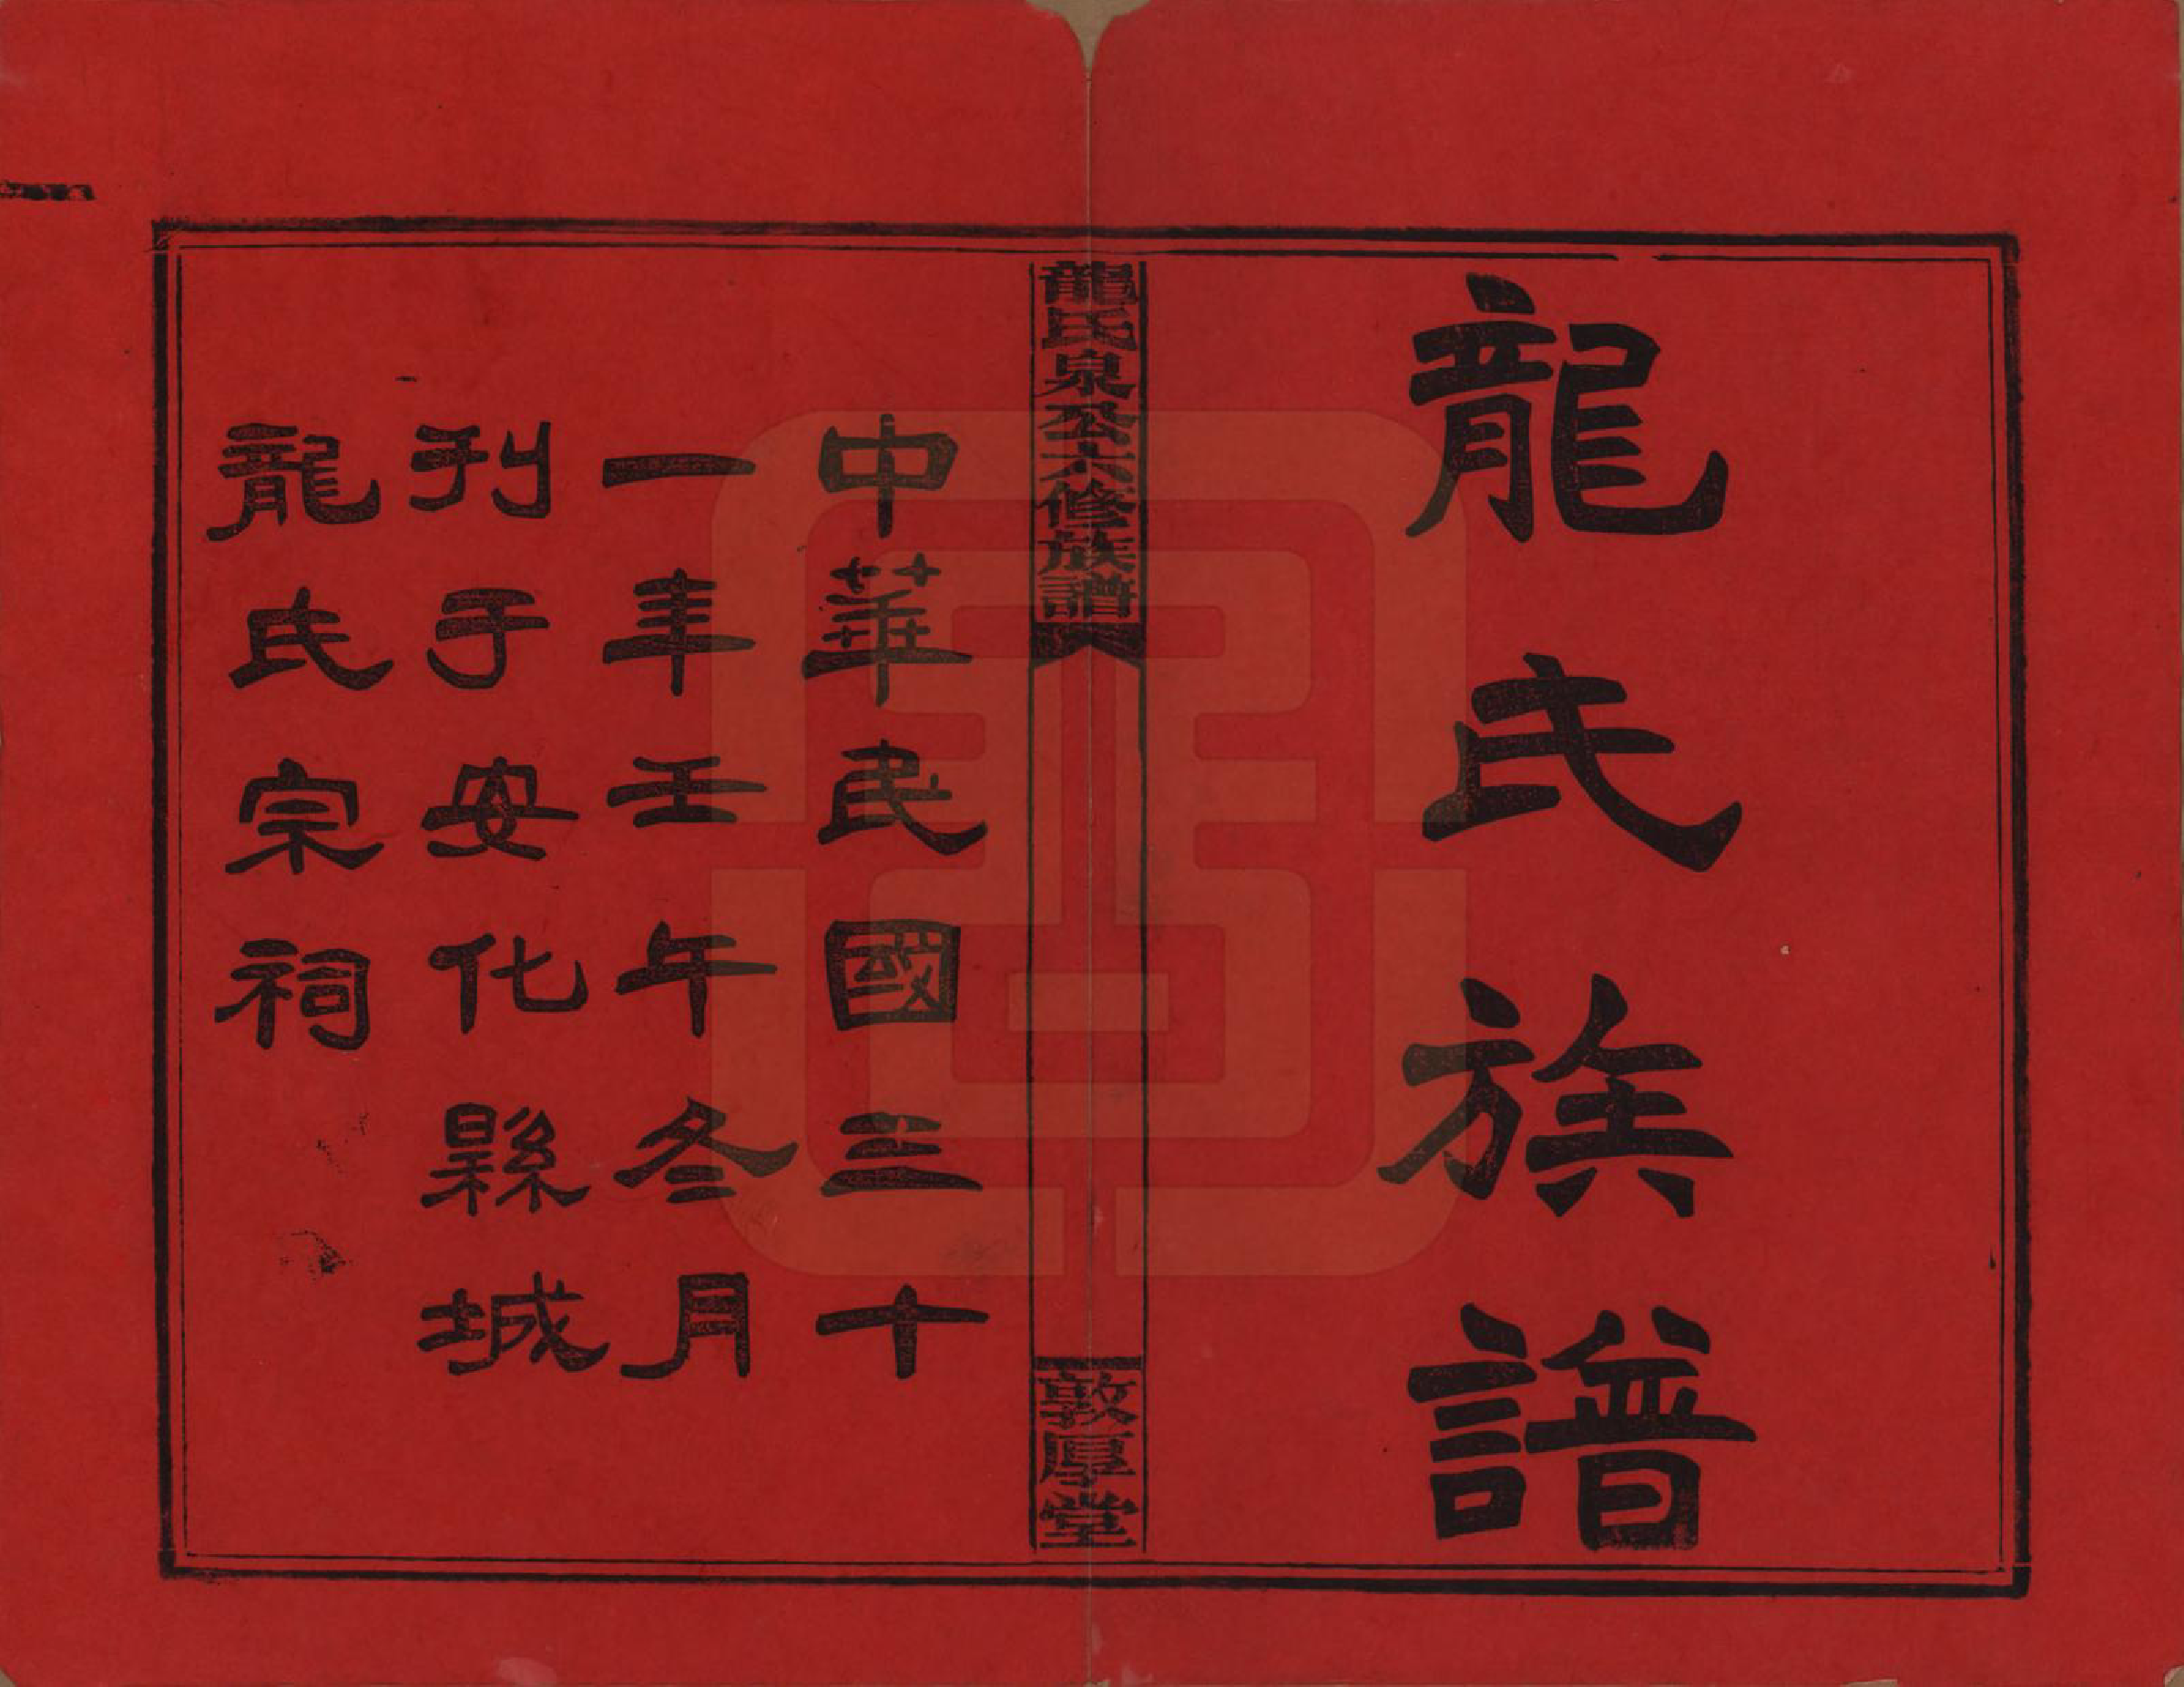 龍氏族譜
龍氏泉公六修族譜
敦厚堂
中華民國三十
一年壬午冬月
刊于安化縣城
龍氏宗祠